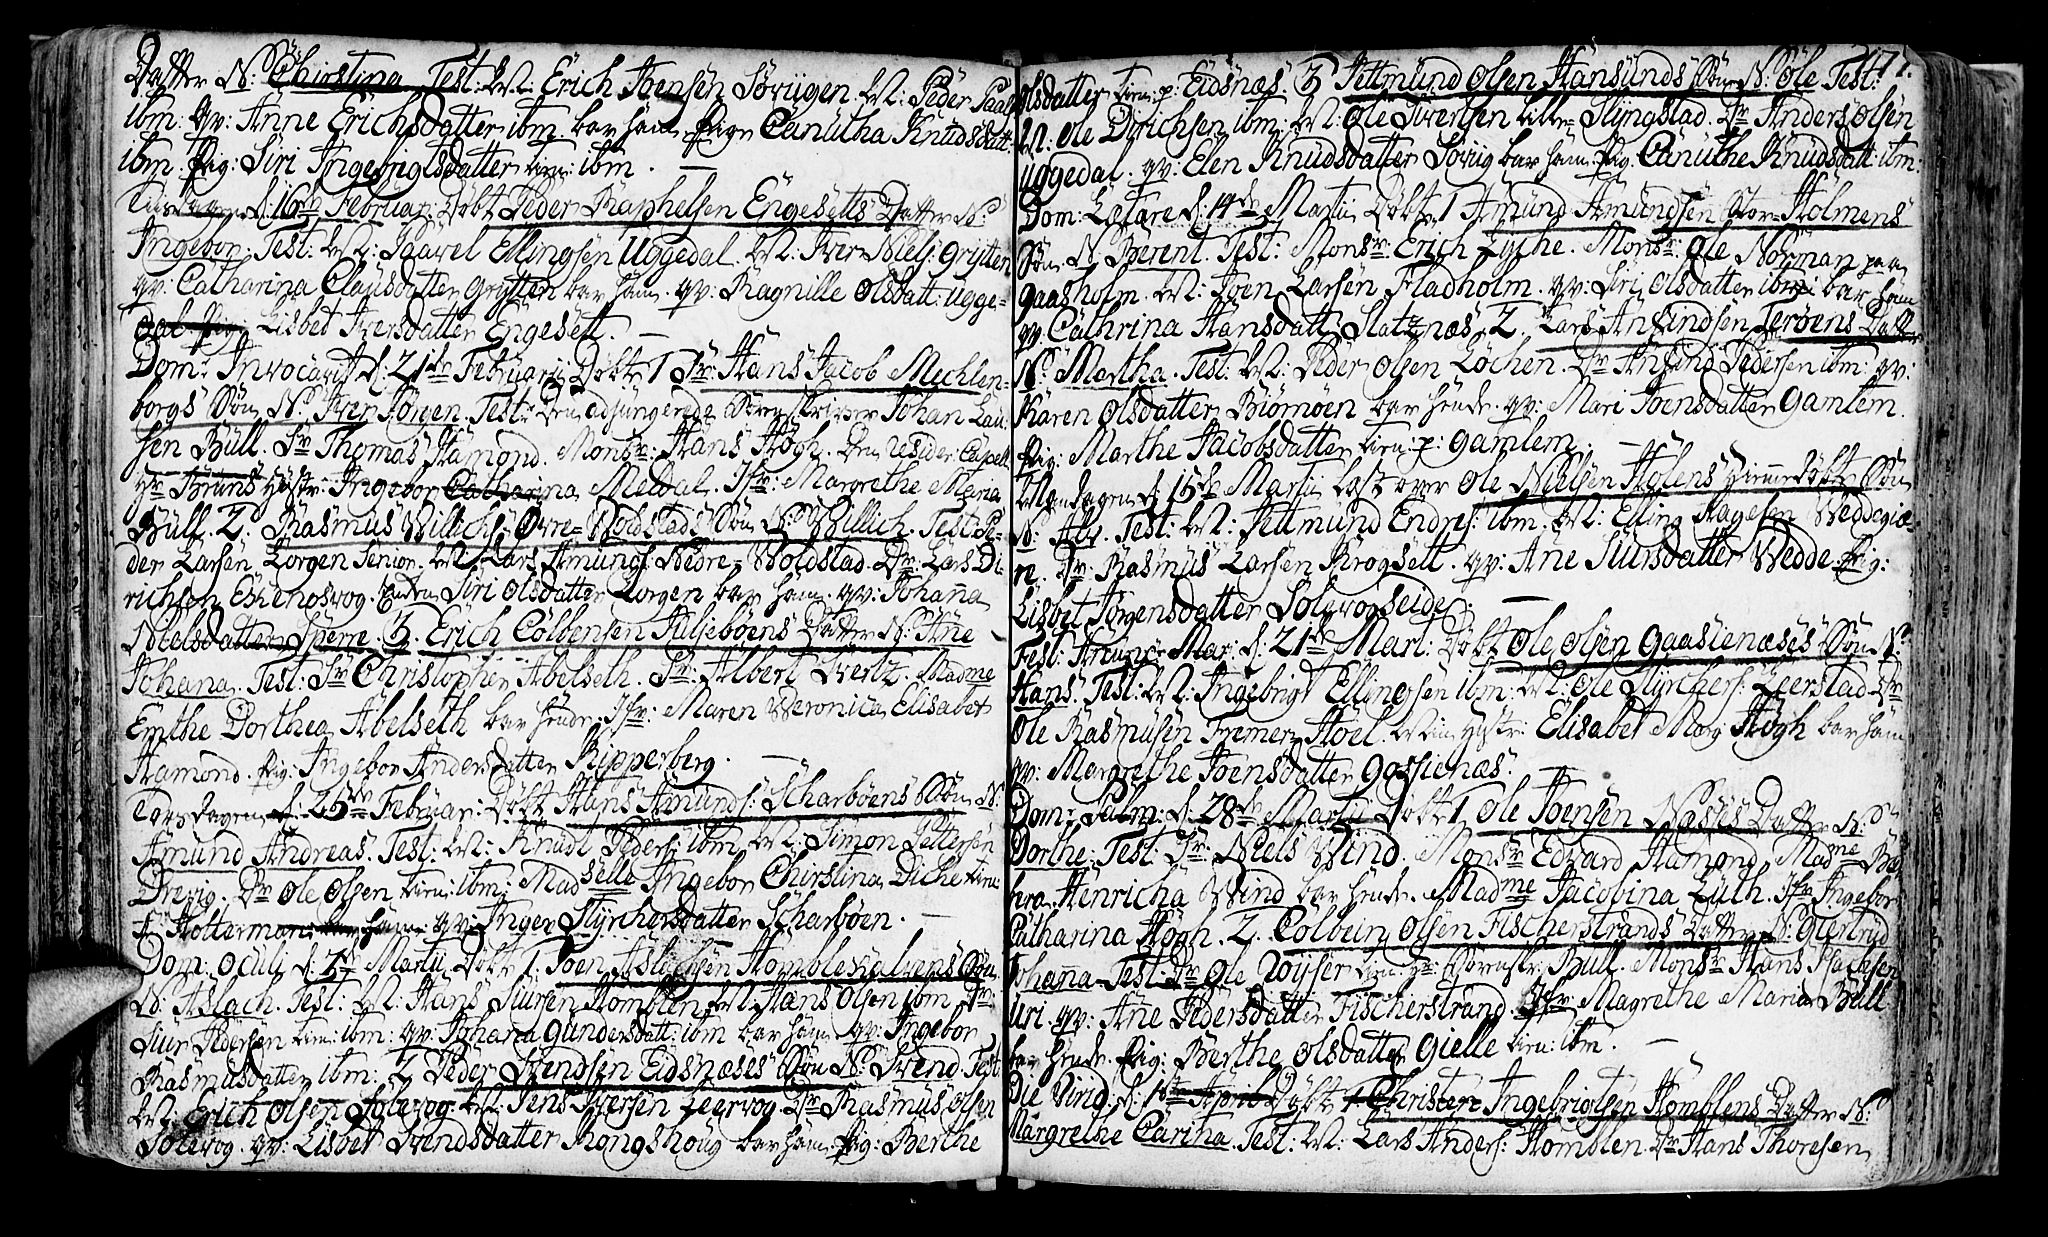 Datter N: Christina Test: M: Erich Joensen Sørvigen. M: Peder Paals:
ibm: qv: Anne Erichsdatter ibm bar ham Pige Canutha Knudsdatt:
ibm. Pig: Siri Ingebrigtsdatter tien: ibm.
Tiisdagen d: 16de Februar: Døbt Peder Raphelsen Engesetts Datter N:
Ingebor: Test: M: Saavel Ellingsen Uggedal. M: Iver Niels: Grytten
qv: Catharina Clausdatter Grytten bar ham. qv: Ragnille Olsdatt: Ugge-
dal Pig: Lisbet Iversdatter Engesett.
Dom: Invocavit d: 21de Februarii Døbt 1 Sr: Hans Jacob Mechlen-
borgs Søn N: Iver Jørgen. Test: Den adjungerede Sorenskriver Johan Lau-
sen Bull. Sr Thomas Hamond. Monsr: Hans Høgh. Den Resider: Capell:
Hr Bruns Hustr: Ingebor Catharina Meldal. Jfr: Margrethe Maria
Bull. 2. Rasmus Willichs: Øvre-Woldstads Søn N: Willich. Test: Pe-
der Larsen Lorgen Senior. M: Lars Amunds: Nedre-Woldstad. Dr: Lars Di-
richsen Ekenosvog. Enken Siri Olsdatter Lorgen bar ham. qv: Johanna
Nielsdatter Sperre. 3. Erich Colbensen Siljebøens Datter N: Ane
Johana. Test: Sr Christopher Abelseth. Sr: Albert Wertz. Madme
Emthe Dorthea Abelseth bar hende. Jfr: Maren Weronica Elisabet
Hamond. Pig: Ingebor Andersdatter Ripperberg.
Torsdagen d: 25de Februar: Døbt Hans Amunds: Scharbøens Søn N:
Amund Andreas. Test: M: Knudt Peders: ibm M: Simon Pettersen
Drevig. Dr Ole Olsen tien: ibm: Madselle Ingebor Christina Diche tien:
H Holterman bar ham. qv: Inger Styrchersdatter Scharbøen.
Dom: Oculi d: 7de Martii Døbt 1. Joen Aslachsen Homblekalvens Søn
N: Aslach. Test: M: Hans Siursen Homblen M: Hans Olsen ibm Dr:
Siur Pedersen tien: ibm. qv: Johana Gundersdatt: ibm bar ham. qv: Ingebor
Rasmusdatter ibm: 2 Peder Svendsen Eidsnæses Søn N: Svend. Test:
M: Erich Olsen Solevog. M: Jens Iversen Leervog. Dr: Rasmus Olsen
Solevog. qv: Lisbet Svendsdatter Rongshoug bar ham Pig: Berthe
171.
Olsdatter tien: p: Eidsnæs. 3 Pettmund Olsen Hansunds Søn N: Ole Test:
M: Ole Dirichsen ibm: M: Ole Iversen Lille-Slyngstad. Dr Anders Olsen
Uggedal. qv: Elen Knudsdatter Sorvig bar ham Pig: Canuthe Knudsdatt: ibm.
Dom: Lætare d: 14de Martii Døbt 1 Amund Amundsen Stor-Holmens
Søn N: Berent. Test: Monsr: Erich Lyche. Monsr: Ole Norman paa
Gaasholm. M: Joen Larsen Fladholm. qv: Siri Olsdatter ibm bar ham
qv: Cathrina Hansdatt: Slatnæs. 2. Lars Anfindsen Terøens Datter
N: Martha. Test: M: Peder Olsen Lochen. Dr Anfind Pedersen ibm: qv:
Karen Olsdatter Biørnøen bar hende. qv: Mari Joensdatter Gamlem.
Pig: Marthe Jacobsdatter tien: p: Gamlem.
Mandagen d: 15de Martii Læst over Ole Nielsen Holens Hiemmedøbte Søn
N: Abr. Test: M: Pettmund Endres: ibm. M: Elling Hagesen Weddegiæ-
re. Dr: Rasmus Larsen Krogsett. qv: Ane Siursdatter Wedde. Pig:
Lisbet Jørgensdatter Solevogseide.
Fest: Anunc: Mar: d: 21de Mart: Døbt Ole Olsen Gaasienæses Søn N:
Hans. Test: M: Ingebrigt Ellingsen ibm: M: Ole Styrchers: Leerstad. Dr
Ole Rasmusen Fremer-Hoel. M tien: Hustr: Elisabet Marg Høgh bar ham
qv: Margrethe Joensdatter Gaasienæs.
Dom: Palm: d: 28de Martii Døbt 1. Ole Joensen Næses Datter N:
Dorthe: Test: Sr: Niels Wind. Monsr Edvard Hamond. Madme Bæ-
hra Hinricha Wind bar hende. Madme Jacobina Luth. Jfr Ingebor
Catharina Høgh. 2. Colbein Olsen Fischerstrands Datter N: Giertrud
Johanna Test: Dr Ole tien: Hr Sorenskr: Bull. Monsr Hans
Uri. qv: Ane Pedersdatter Fischerstrand. Jfr: Magrethe Maria Bull
bar hende. Pig: Berthe Olsdatter Gielle tien: ibm.
Die Virid: d: 1ste April Døbt 1 Christen Ingebrigtsen Homblens Datter N:
Margrethe Carina. Test: M: Lars Anders: Homblen. Dr Hans Thoresen